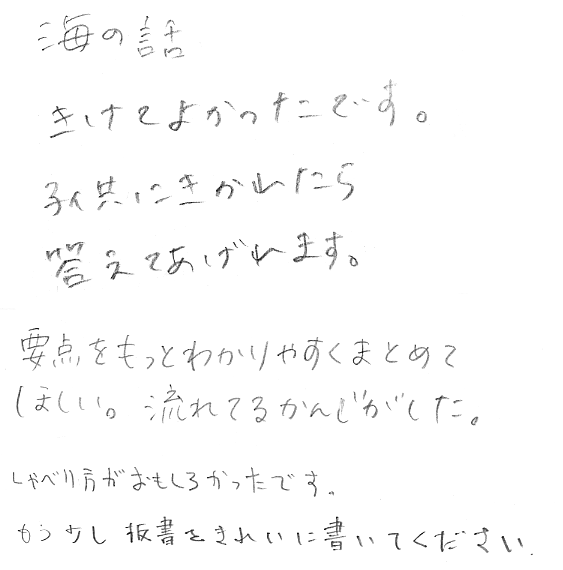 海の話
きけてよかったです。
子供にきかれたら
答えてあげれます。
要点をもっとわかりやすくまとめて
ほしい。流れてるかんじがした。
しゃべり方がおもしろかったです。
もう少し板書をきれいに書いてください.